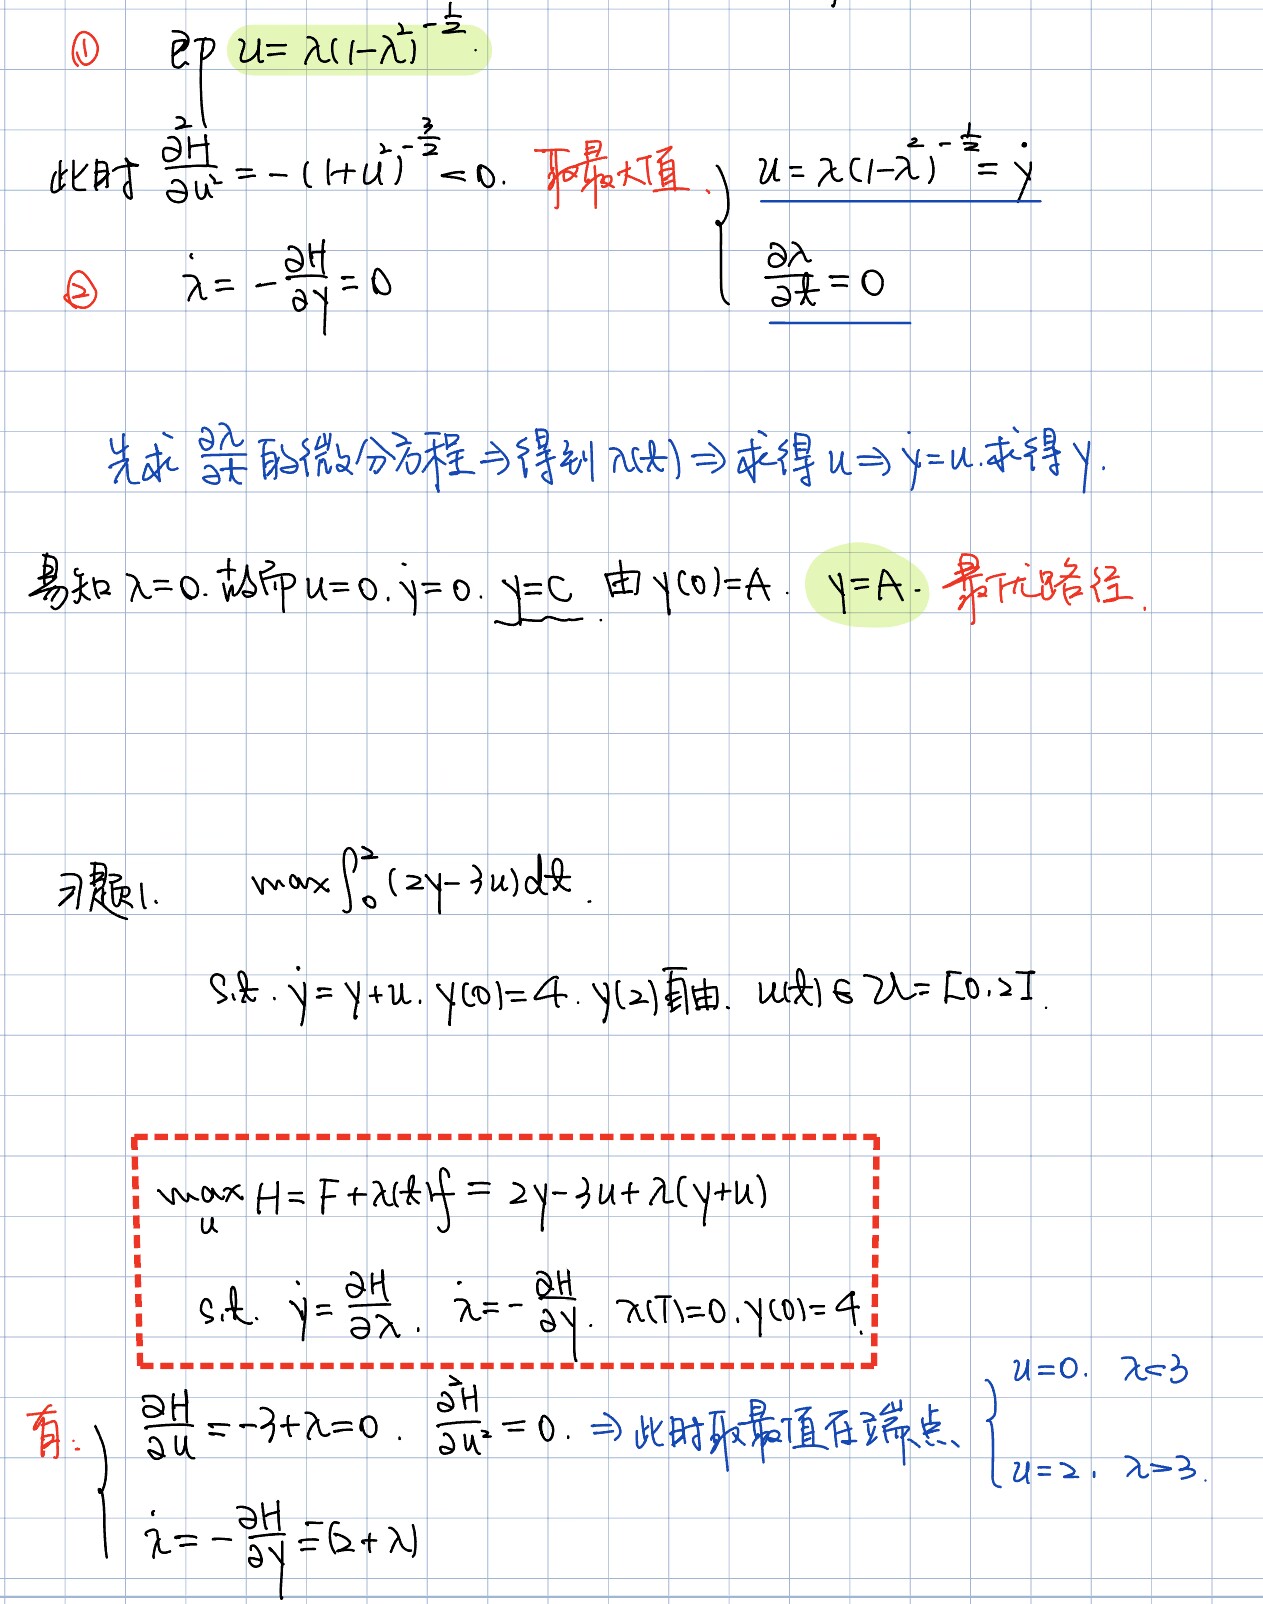 ① 即 u=λ(1-λ²)^{-1/2}.
此时 ∂²H/∂u² = -(1+u²)^{-3/2} <0. 取最大值. { u=λ(1-λ²)^{-1/2}=ẏ
② λ̇ = -∂H/∂y = 0 ∂λ/∂t = 0
先求 ∂λ/∂t 的微分方程⇒得到λ(t)⇒求得 u⇒ẏ=u.求得y.
易知 λ=0. 故而 u=0. ẏ=0. y=C. 由 y(0)=A. y=A. 最优路径.
习题1. max∫₀²(2y-3u)dt.
s.t. ẏ=y+u. y(0)=4. y(2)自由. u(t)∈U=[0,2].
max_u H=F+λ(t)f = 2y-3u+λ(y+u)
s.t. ẏ=∂H/∂λ. λ̇=-∂H/∂y. λ(T)=0. y(0)=4.
有: { ∂H/∂u = -3+λ=0. ∂²H/∂u² = 0. ⇒此时取最值在端点 { u=0. λ<3
u=2. λ>3.
λ̇ = -∂H/∂y = -(2+λ)